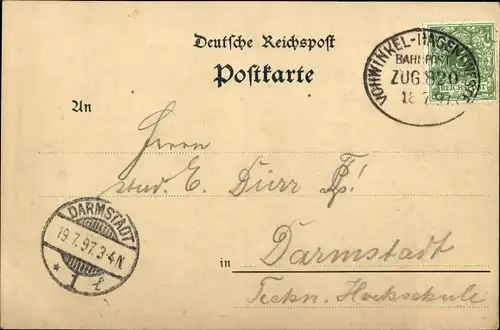 Deutsche Reichspost
Postkarte
VOHWINKEL-HAGEN (WESTF.)
BAHNPOST
ZUG 820
18.7.97
REICHSPOST
An
Herrn
stud. E. Dürr
in Darmstadt
Techn. Hochschule
DARMSTADT
19.7.97.3-4N.
* 1 t